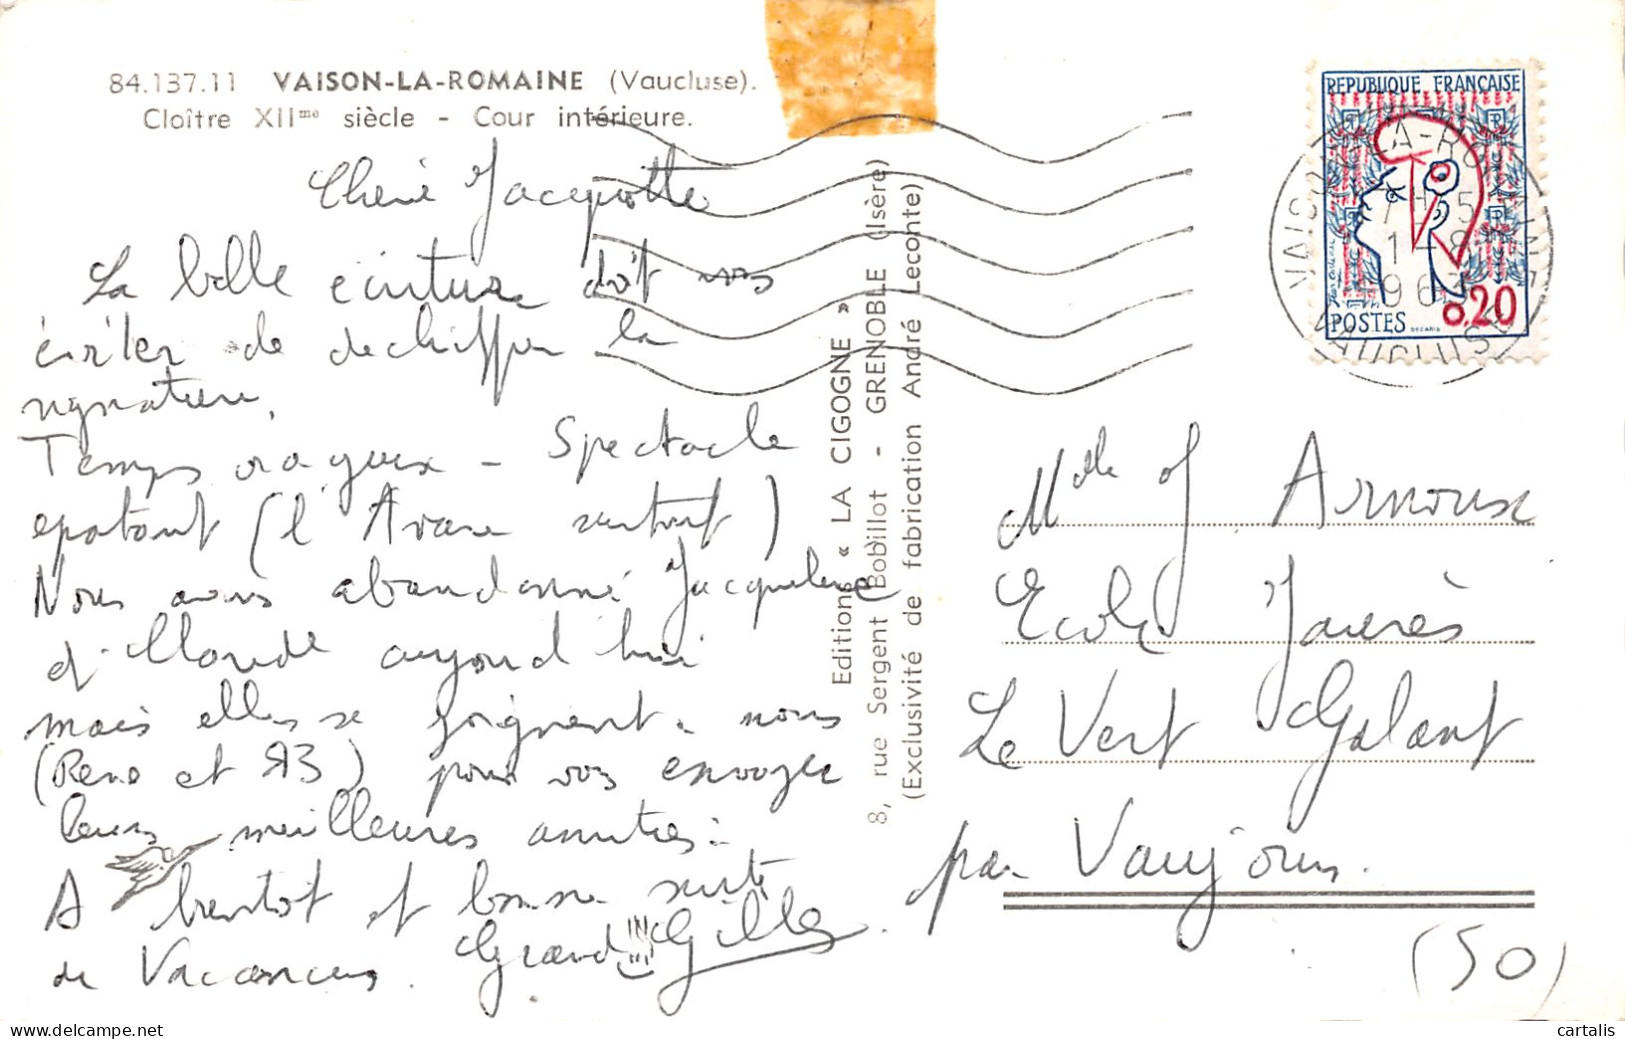 84.137.11 VAISON-LA-ROMAINE (Vaucluse).
Cloître XIIme siècle - Cour intérieure.
Chère Jacquotte
La belle écriture doit vous
éviter de dechiffrer la
signature.
Temps orageux - Spectacle
epatant (l'Avare surtout)
Nous avons abandonné Jacqueline
et Claude aujourd'hui
mais elles se joignent à nous
(René et JB) pour vous envoyer
leurs meilleures amitiés.
A bientot et bonne suite
de Vacances. Grand Gilles
Editions « LA CIGOGNE »
8, rue Sergent Bobillot - GRENOBLE (Isère)
(Exclusivité de fabrication André Leconte)
REPUBLIQUE FRANÇAISE
0.20
POSTES
DECARIS
VAISON-LA-ROMAINE
VAUCLUSE
Mlle J Arnoux
Ecole Jaurès
Le Vert Galant
par Vaujours
(SO)
cartalis